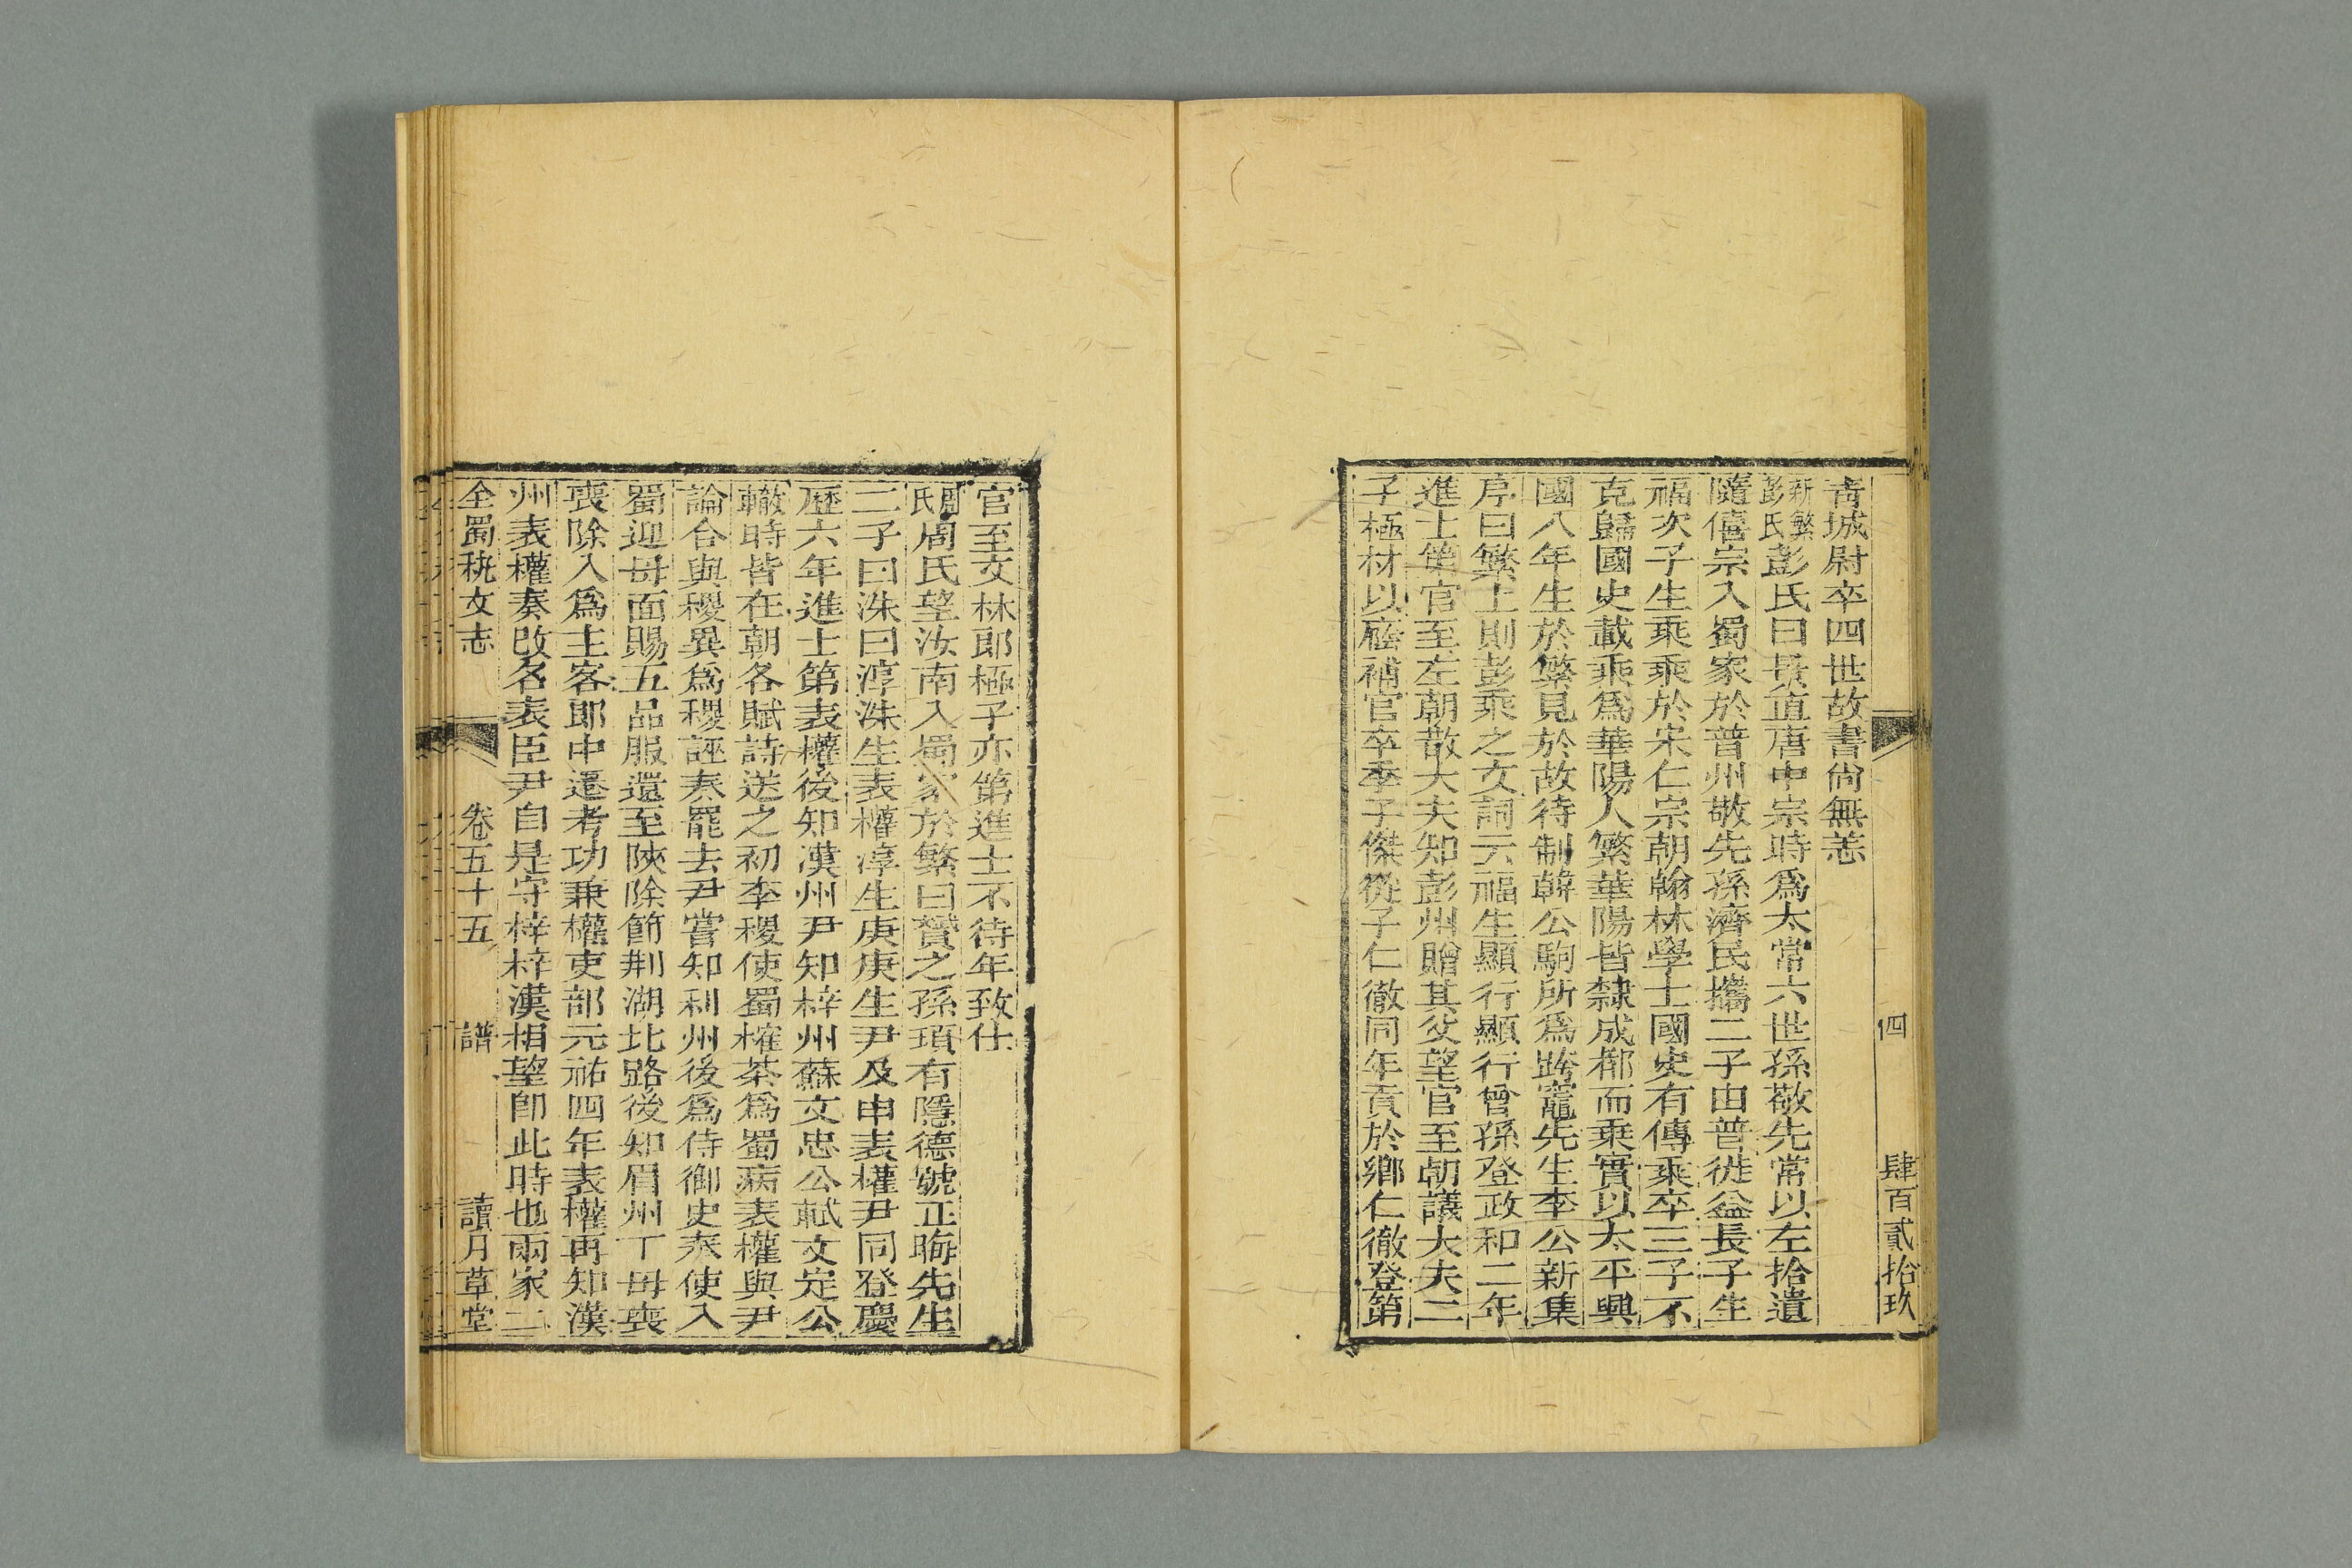 四 肆百貳拾玖
靑城尉卒四世故書尙無恙
新繁彭氏彭氏曰景直唐中宗時爲太常六世孫敬先常以左拾遺
隨僖宗入蜀家於普州敬先孫濟民攜二子由普徙益長子生
福次子生乘乘於宋仁宗朝翰林學士國史有傳乘卒三子不
克歸國史載乘爲華陽人繁華陽皆隸成都而乘實以太平興
國八年生於繁見於故待制韓公駒所爲跨竈先生李公新集
序曰繁上則彭乘之文詞云福生顯行顯行曾孫登政和二年
進士第官至左朝散大夫知彭州贈其父望官至朝議大夫二
子極材以廕補官卒季子傑從子仁徹同年貢於鄕仁徹登第
官至文林郎極子亦第進士不待年致仕
周氏周氏望汝南入蜀家於繁曰贊之孫頊有隱德號正晦先生
二子曰洙曰淳洙生表權淳生庚庚生尹及申表權尹同登慶
歷六年進士第表權後知漢州尹知梓州蘇文忠公軾文定公
轍時皆在朝各賦詩送之初李稷使蜀榷茶爲蜀病表權與尹
論合與稷異爲稷誣奏罷去尹嘗知利州後爲侍御史奉使入
蜀迎母面賜五品服還至陝除節荆湖北路後知眉州丁母喪
喪除入爲主客郎中遷考功兼權吏部元祐四年表權再知漢
州表權奏改名表臣尹自是守梓梓漢相望卽此時也兩家二
全蜀秇文志 卷五十五 譜 讀月草堂